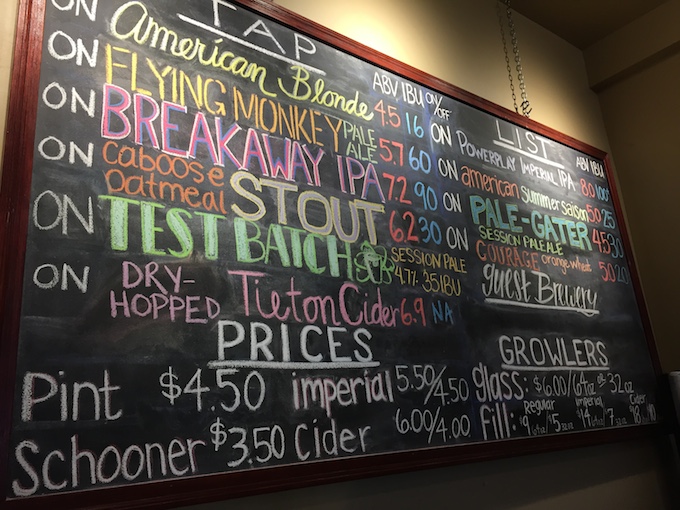 TAP LIST
ABV IBU ON/OFF
ON American Blonde 4.5 16
ON FLYING MONKEY PALE ALE 5.7 60
ON BREAKAWAY IPA 7.2 90
ON Caboose Oatmeal STOUT 6.2 30
ON TEST BATCH SESSION PALE 4.7% 35 IBU
ON DRY-HOPPED Tieton Cider 6.9 NA
ABV IBU
ON Powerplay Imperial IPA 8.0 100
ON american summer saison 5.0 25
PALE-GATER
SESSION PALE ALE
ON COURAGE orange wheat 5.0
guest Brewery
PRICES
Pint $4.50 imperial 5.50/4.50
Schooner $3.50 Cider 6.00/4.00
GROWLERS
glass: $6.00/64oz or 32oz
Regular imperial Cider
fill: $9 64oz $5 32oz $14 64oz 18